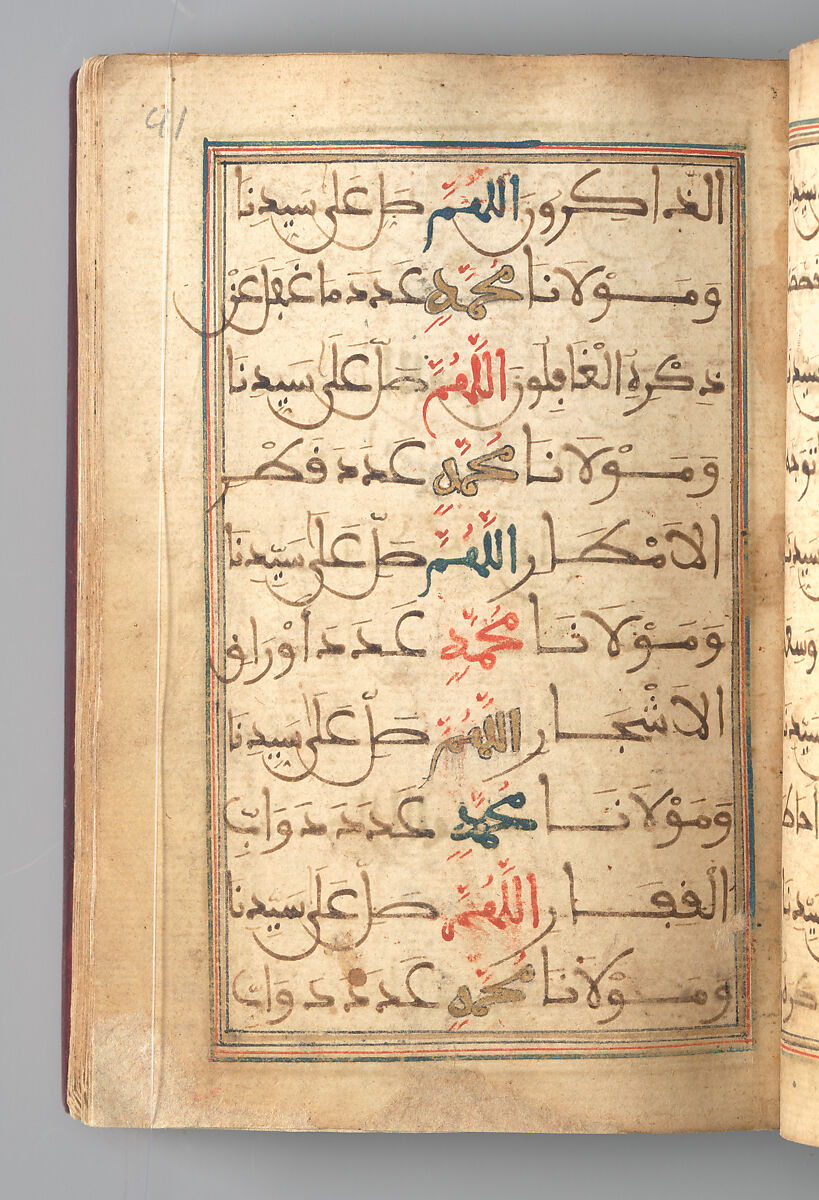 41
الذاكرون اللهم صل على سيدنا
ومولانا محمد عدد ما غفل عن
ذكره الغافلون اللهم صل على سيدنا
ومولانا محمد عدد قطر
الامطار اللهم صل على سيدنا
ومولانا محمد عدد اوراق
الاشجار اللهم صل على سيدنا
ومولانا محمد عدد دواب
القفار اللهم صل على سيدنا
ومولانا محمد عدد دواب